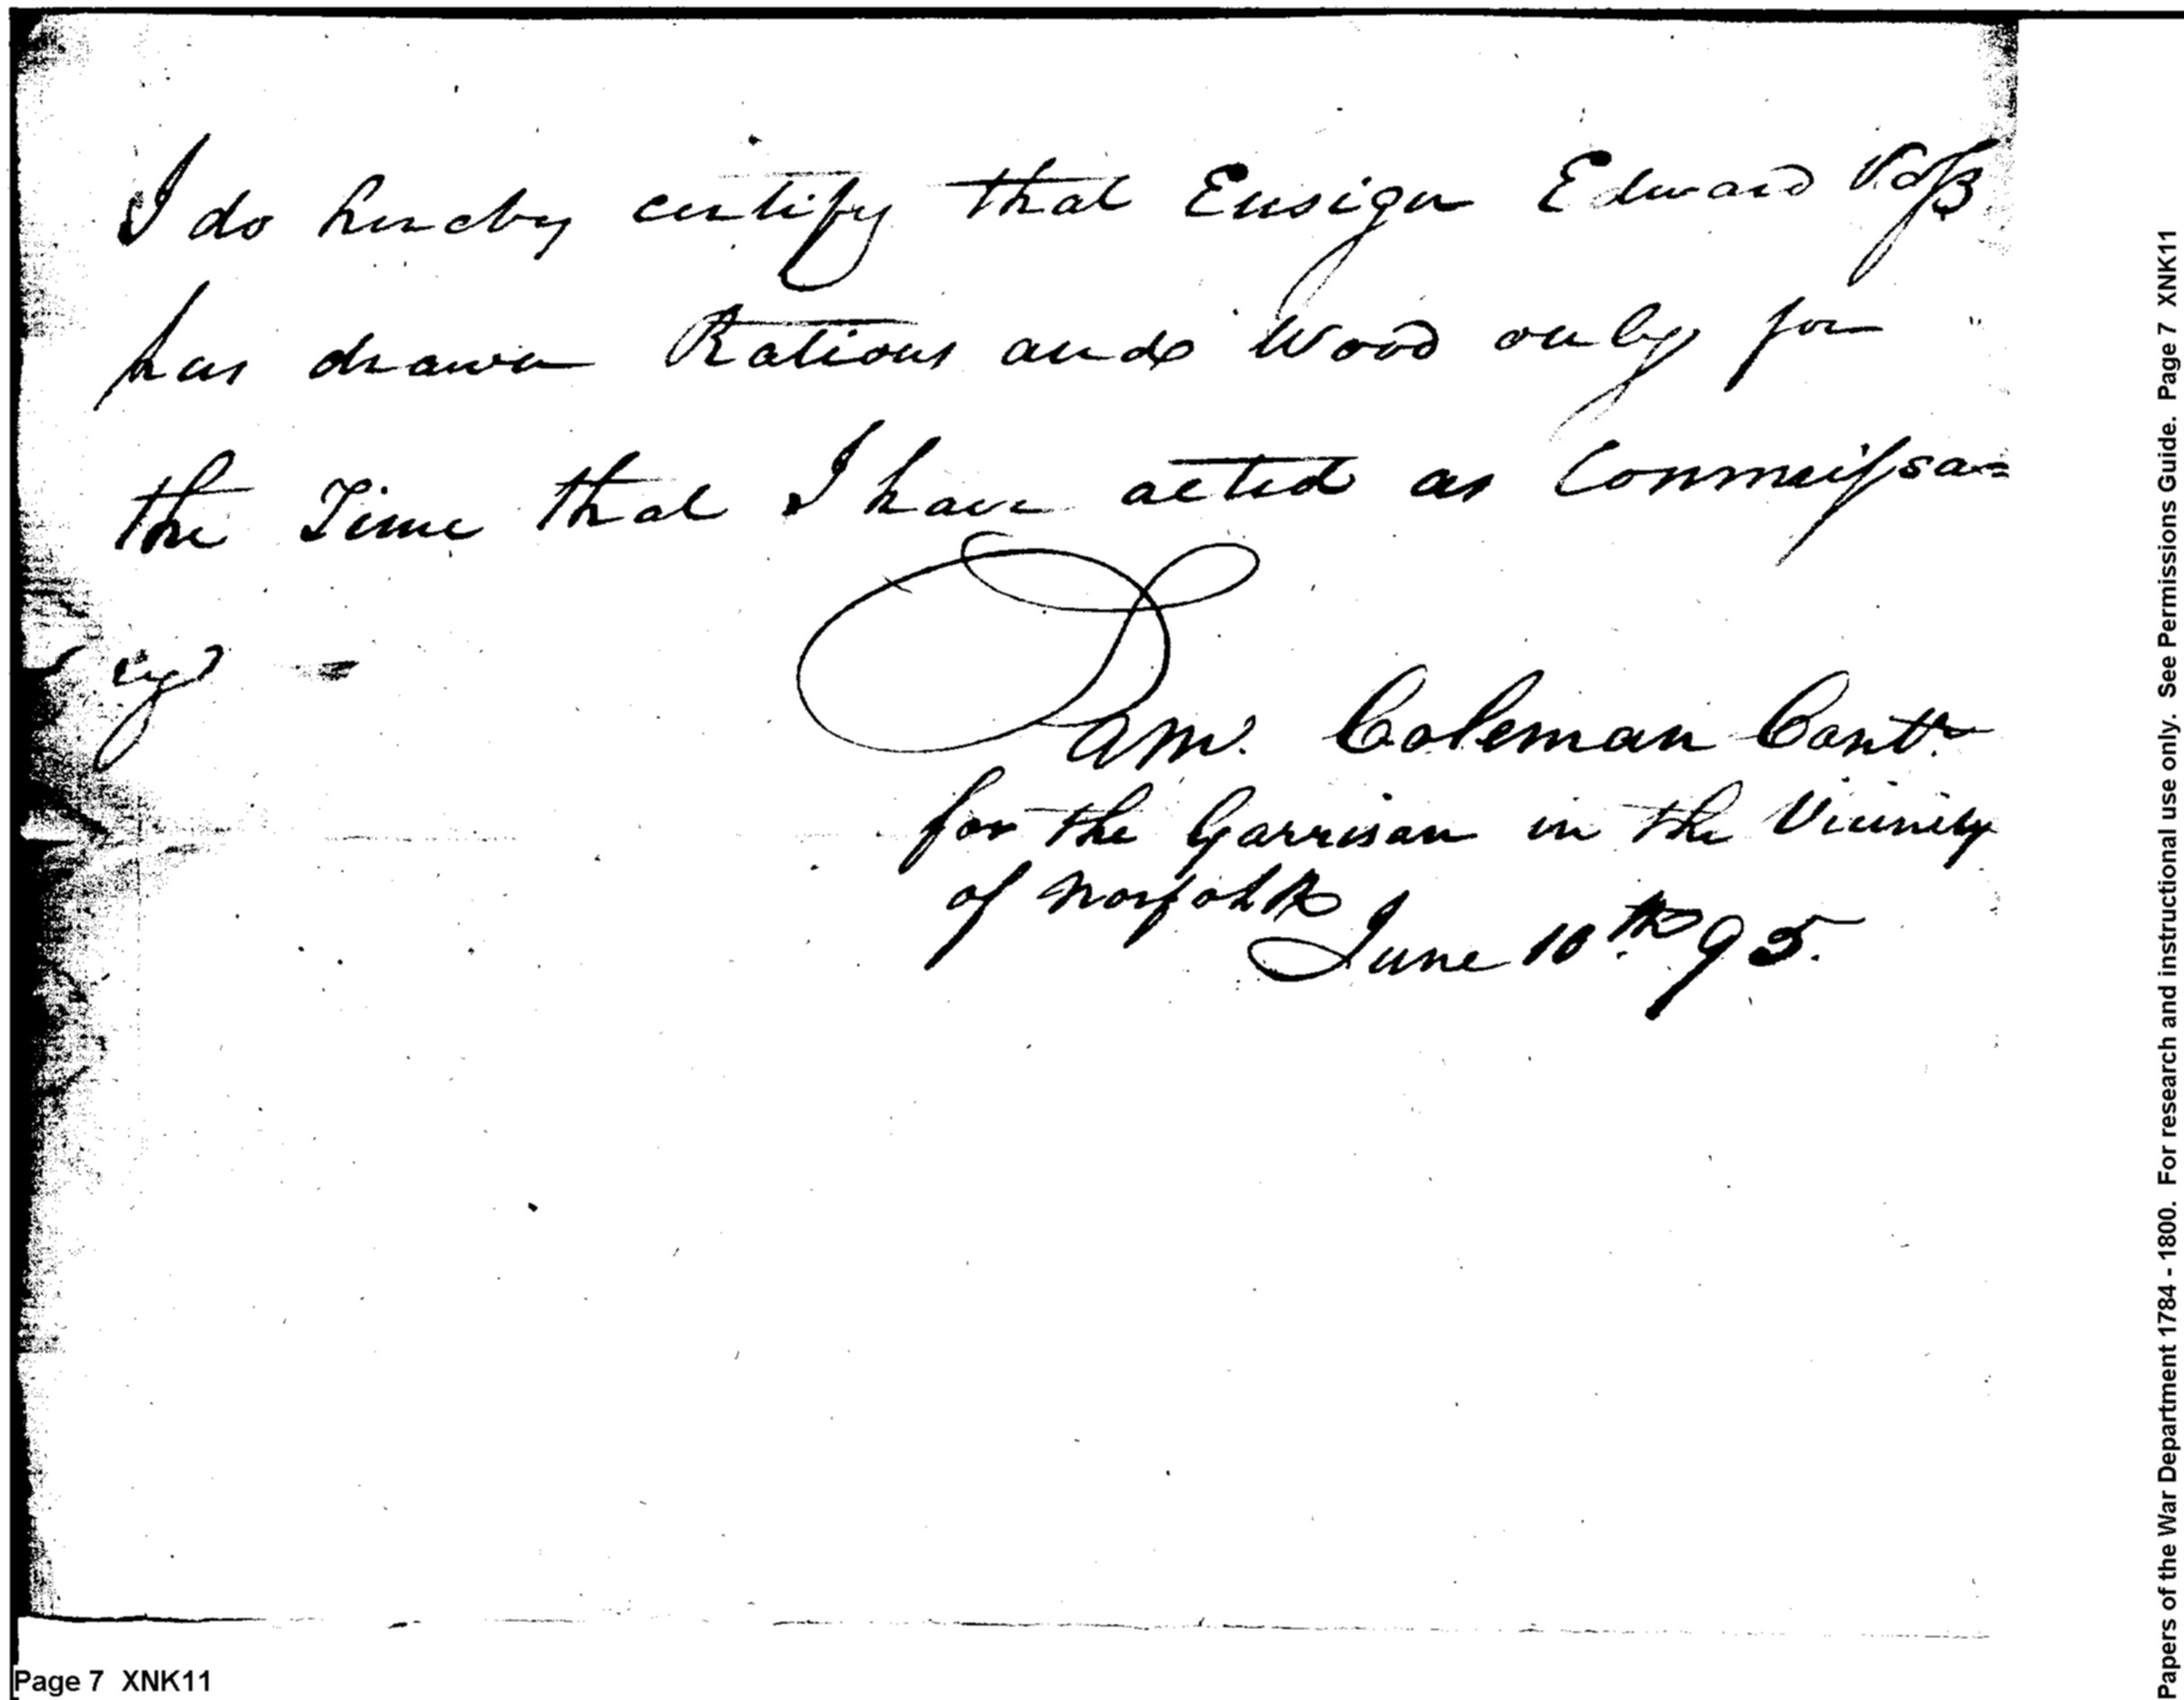 I do hereby certify that Ensign Edward Voss
has drawn Rations and Wood only for
the Time that I have acted as Commissa=
ry
Sam. Coleman Contr.
for the Garrison in the Vicinity
of Norfolk
June 10th 95.
Page 7 XNK11
Papers of the War Department 1784 - 1800. For research and instructional use only. See Permissions Guide. Page 7 XNK11